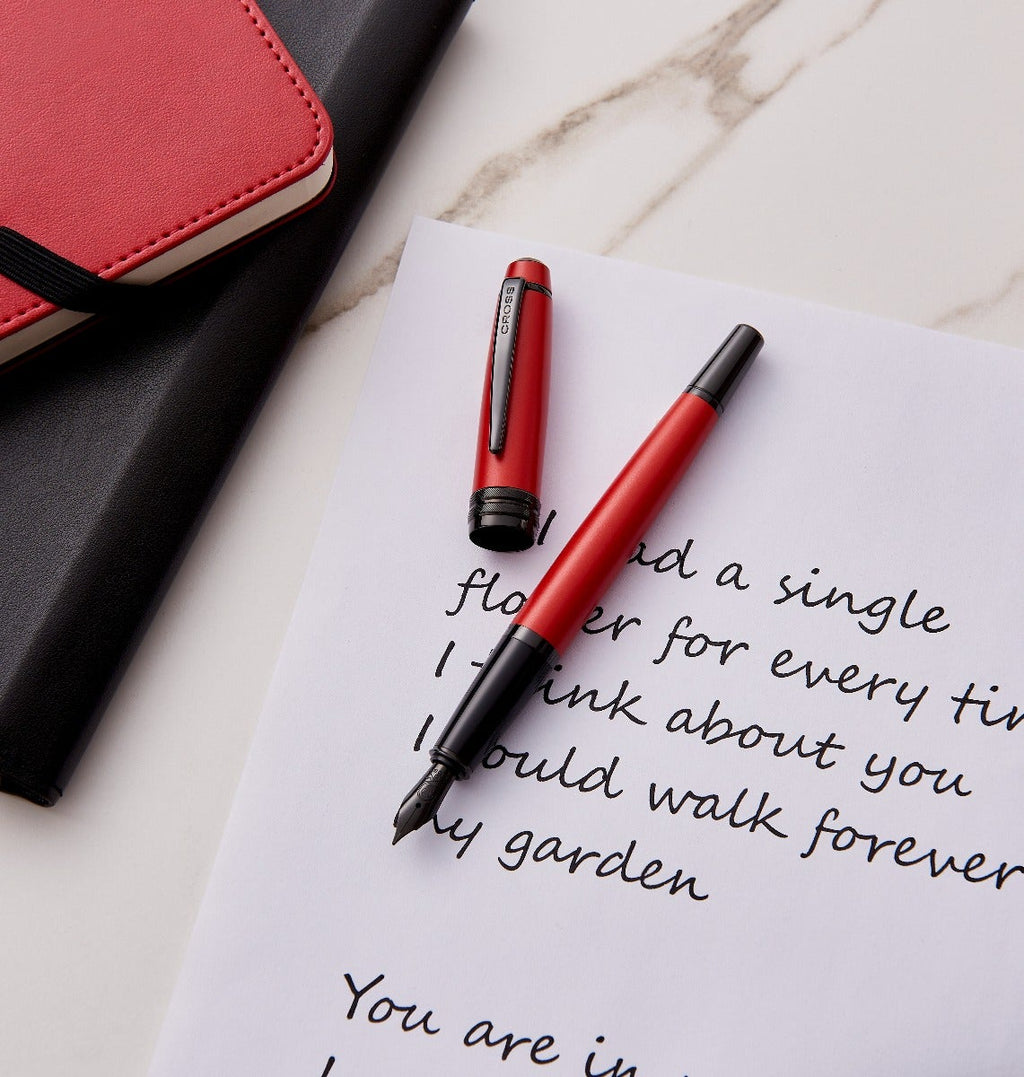 CROSS
I had a single
flower for every
I think about you
I could walk forever
my garden
You are in